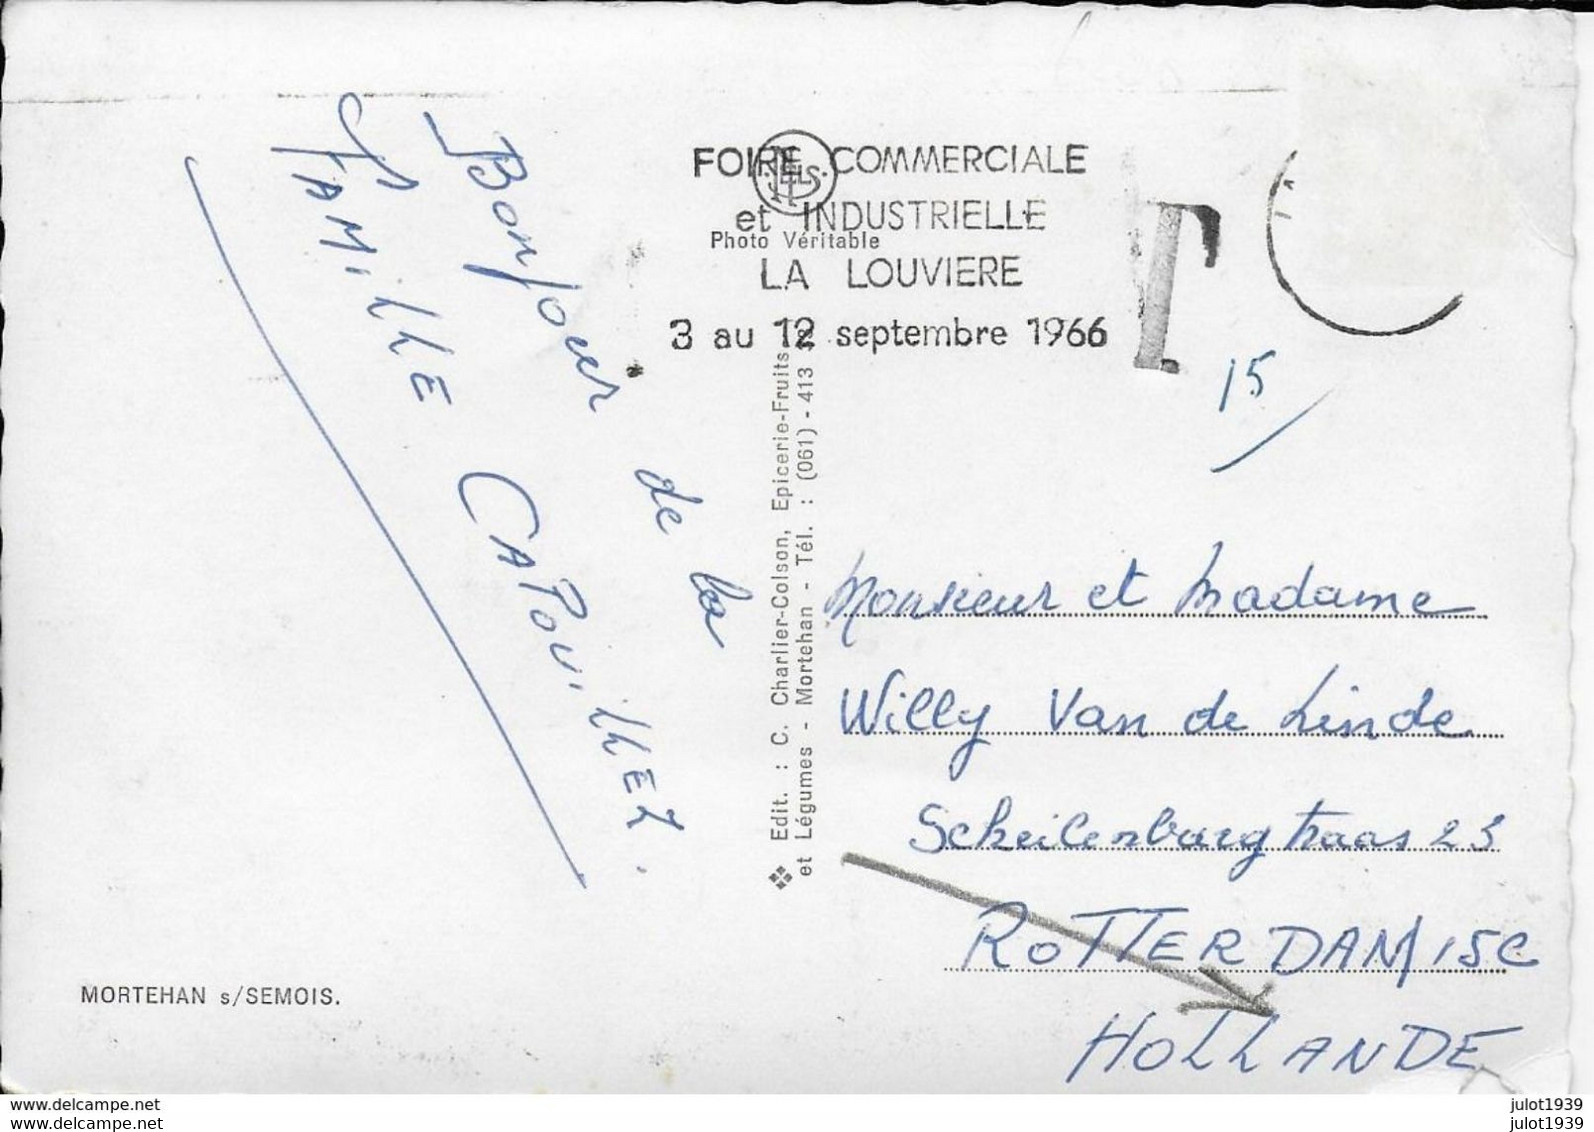 Bonjour de la
FAMILLE CAPOUILLEZ.
FOIRE COMMERCIALE
et INDUSTRIELLE
LA LOUVIERE
3 au 12 septembre 1966
NELS
Photo Véritable
T
15
Edit. : C. Charlier-Colson, Epicerie-Fruits
et Légumes - Mortehan - Tél. : (061) - 413
Monsieur et Madame
Willy Van de Linde
23
ROTTERDAM 15C
HOLLANDE
MORTEHAN s/SEMOIS.
delcampe.net julot1939
delcampe.net julot1939